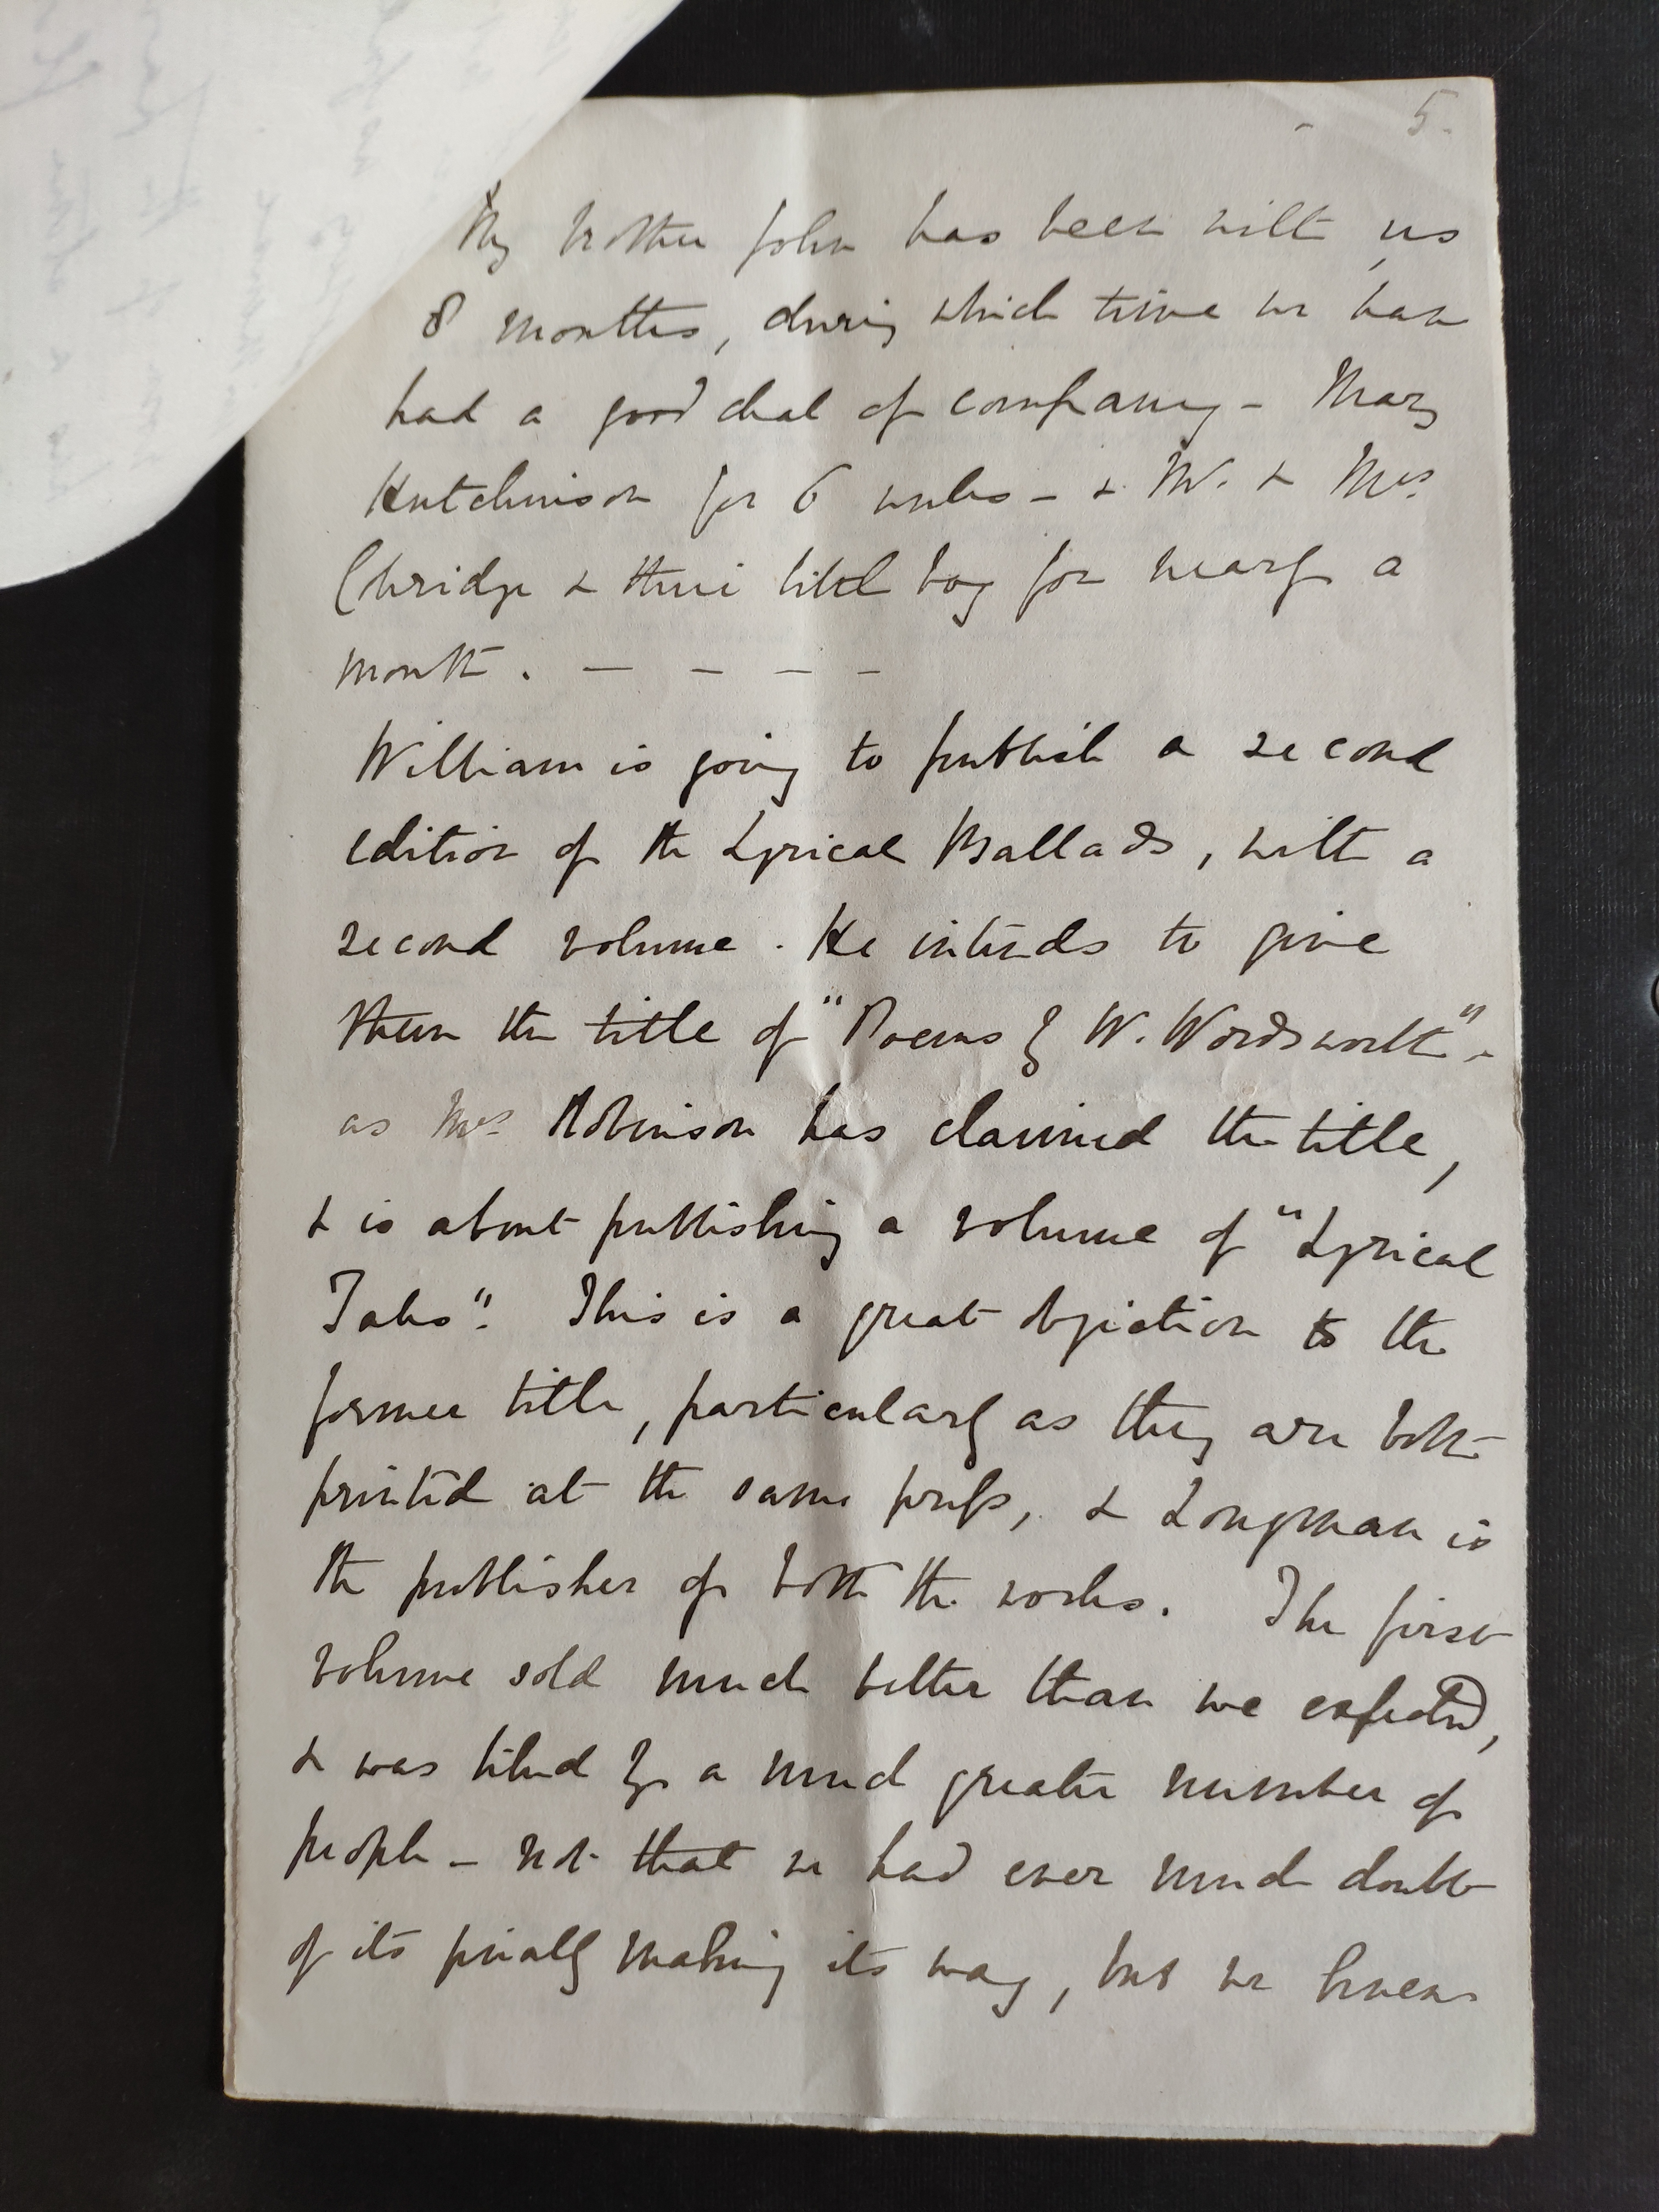 5.
My brother John has been with us
8 months, during which time we have
had a good deal of company - Mary
Hutchinson for 6 weeks - & Mr. & Mrs.
Cbridge & their little boy for nearly a
month. — — — —
William is going to publish a second
edition of the Lyrical Ballads, with a
second volume. He intends to give
them the title of "Poems by W. Wordsworth" -
as Mrs. Robinson has claimed the title,
& is about publishing a volume of "Lyrical
Tales". This is a great objection to the
former title, particularly as they are both
printed at the same press, & Longman is
the publisher of both the works. The first
volume sold much better than we expected,
& was liked by a much greater number of
people - not that we had ever much doubt
of its finally making its way, but we knew